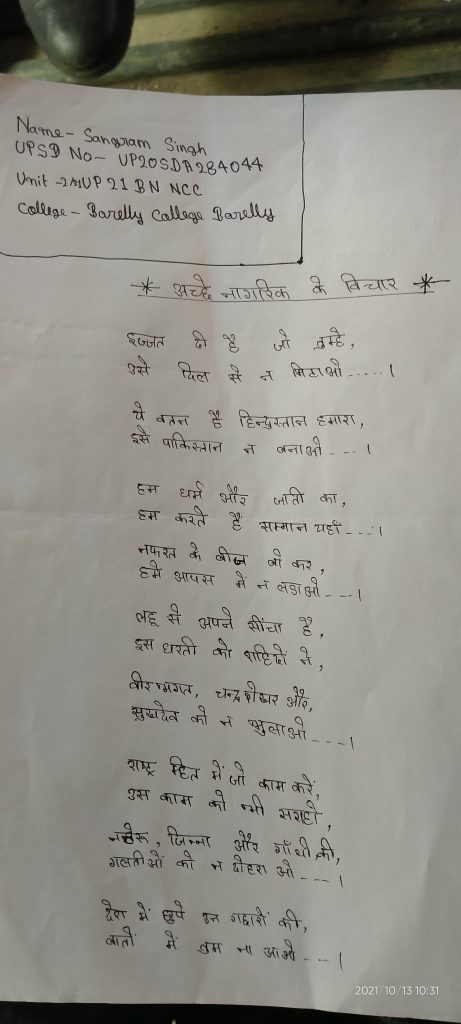 Name- Sangram Singh
UPSD No- UP20SDA284044
Unit - UP 21 BN NCC
College- Barelly College Barelly
* अच्छे नागरिक के विचार *
इज्जत दी है जो तुम्हे,
उसे दिल से न मिटाओ.....।
ये वतन है हिन्दुस्तान हमारा,
इसे पाकिस्तान न बनाओ---।
हम धर्म और जाती का,
हम करते हैं सम्मान यहाँ---।
नफरत के बीज बो कर,
हमे आपस में न लडाओ---।
लहू से अपने सींचा है,
इस धरती को शहिदों ने,
वीर भगत, चन्द्रशेखर और,
सुखदेव को न भुलाओ---।
राष्ट्र हित में जो काम करें,
उस काम को भी सराहो,
नहेरू, जिन्ना और गाँधी की,
गलतीओं को न दोहरा ओ---।
देश में छुपे उन गद्दारों की,
बातों में तुम ना आओ---।
2021/10/13 10:31